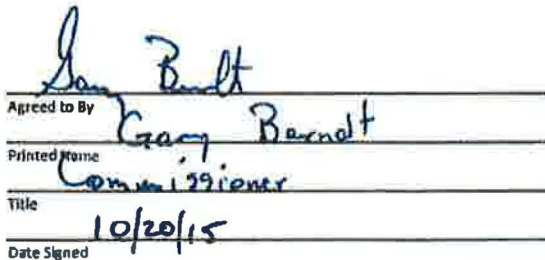 Gary Berndt
Agreed to By
Gary Berndt
Printed Name
Commissioner
Title
10/20/15
Date Signed